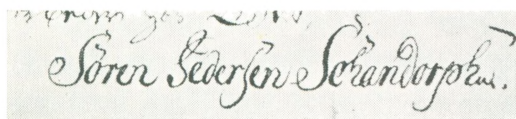 Søren Pedersen Schandorphus.